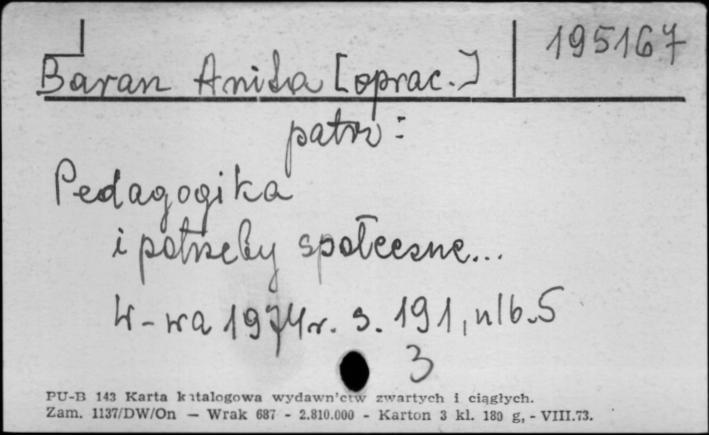 195167
Baran Anita [oprac.]
patrz:
Pedagogika
i potrzeby społeczne...
W-wa 1974r. s. 191, nlb. 5
3
PU-B 143 Karta katalogowa wydawn'ctw zwartych i ciągłych.
Zam. 1137/DW/On — Wrak 687 - 2.810.000 - Karton 3 kl. 180 g, - VIII.73.